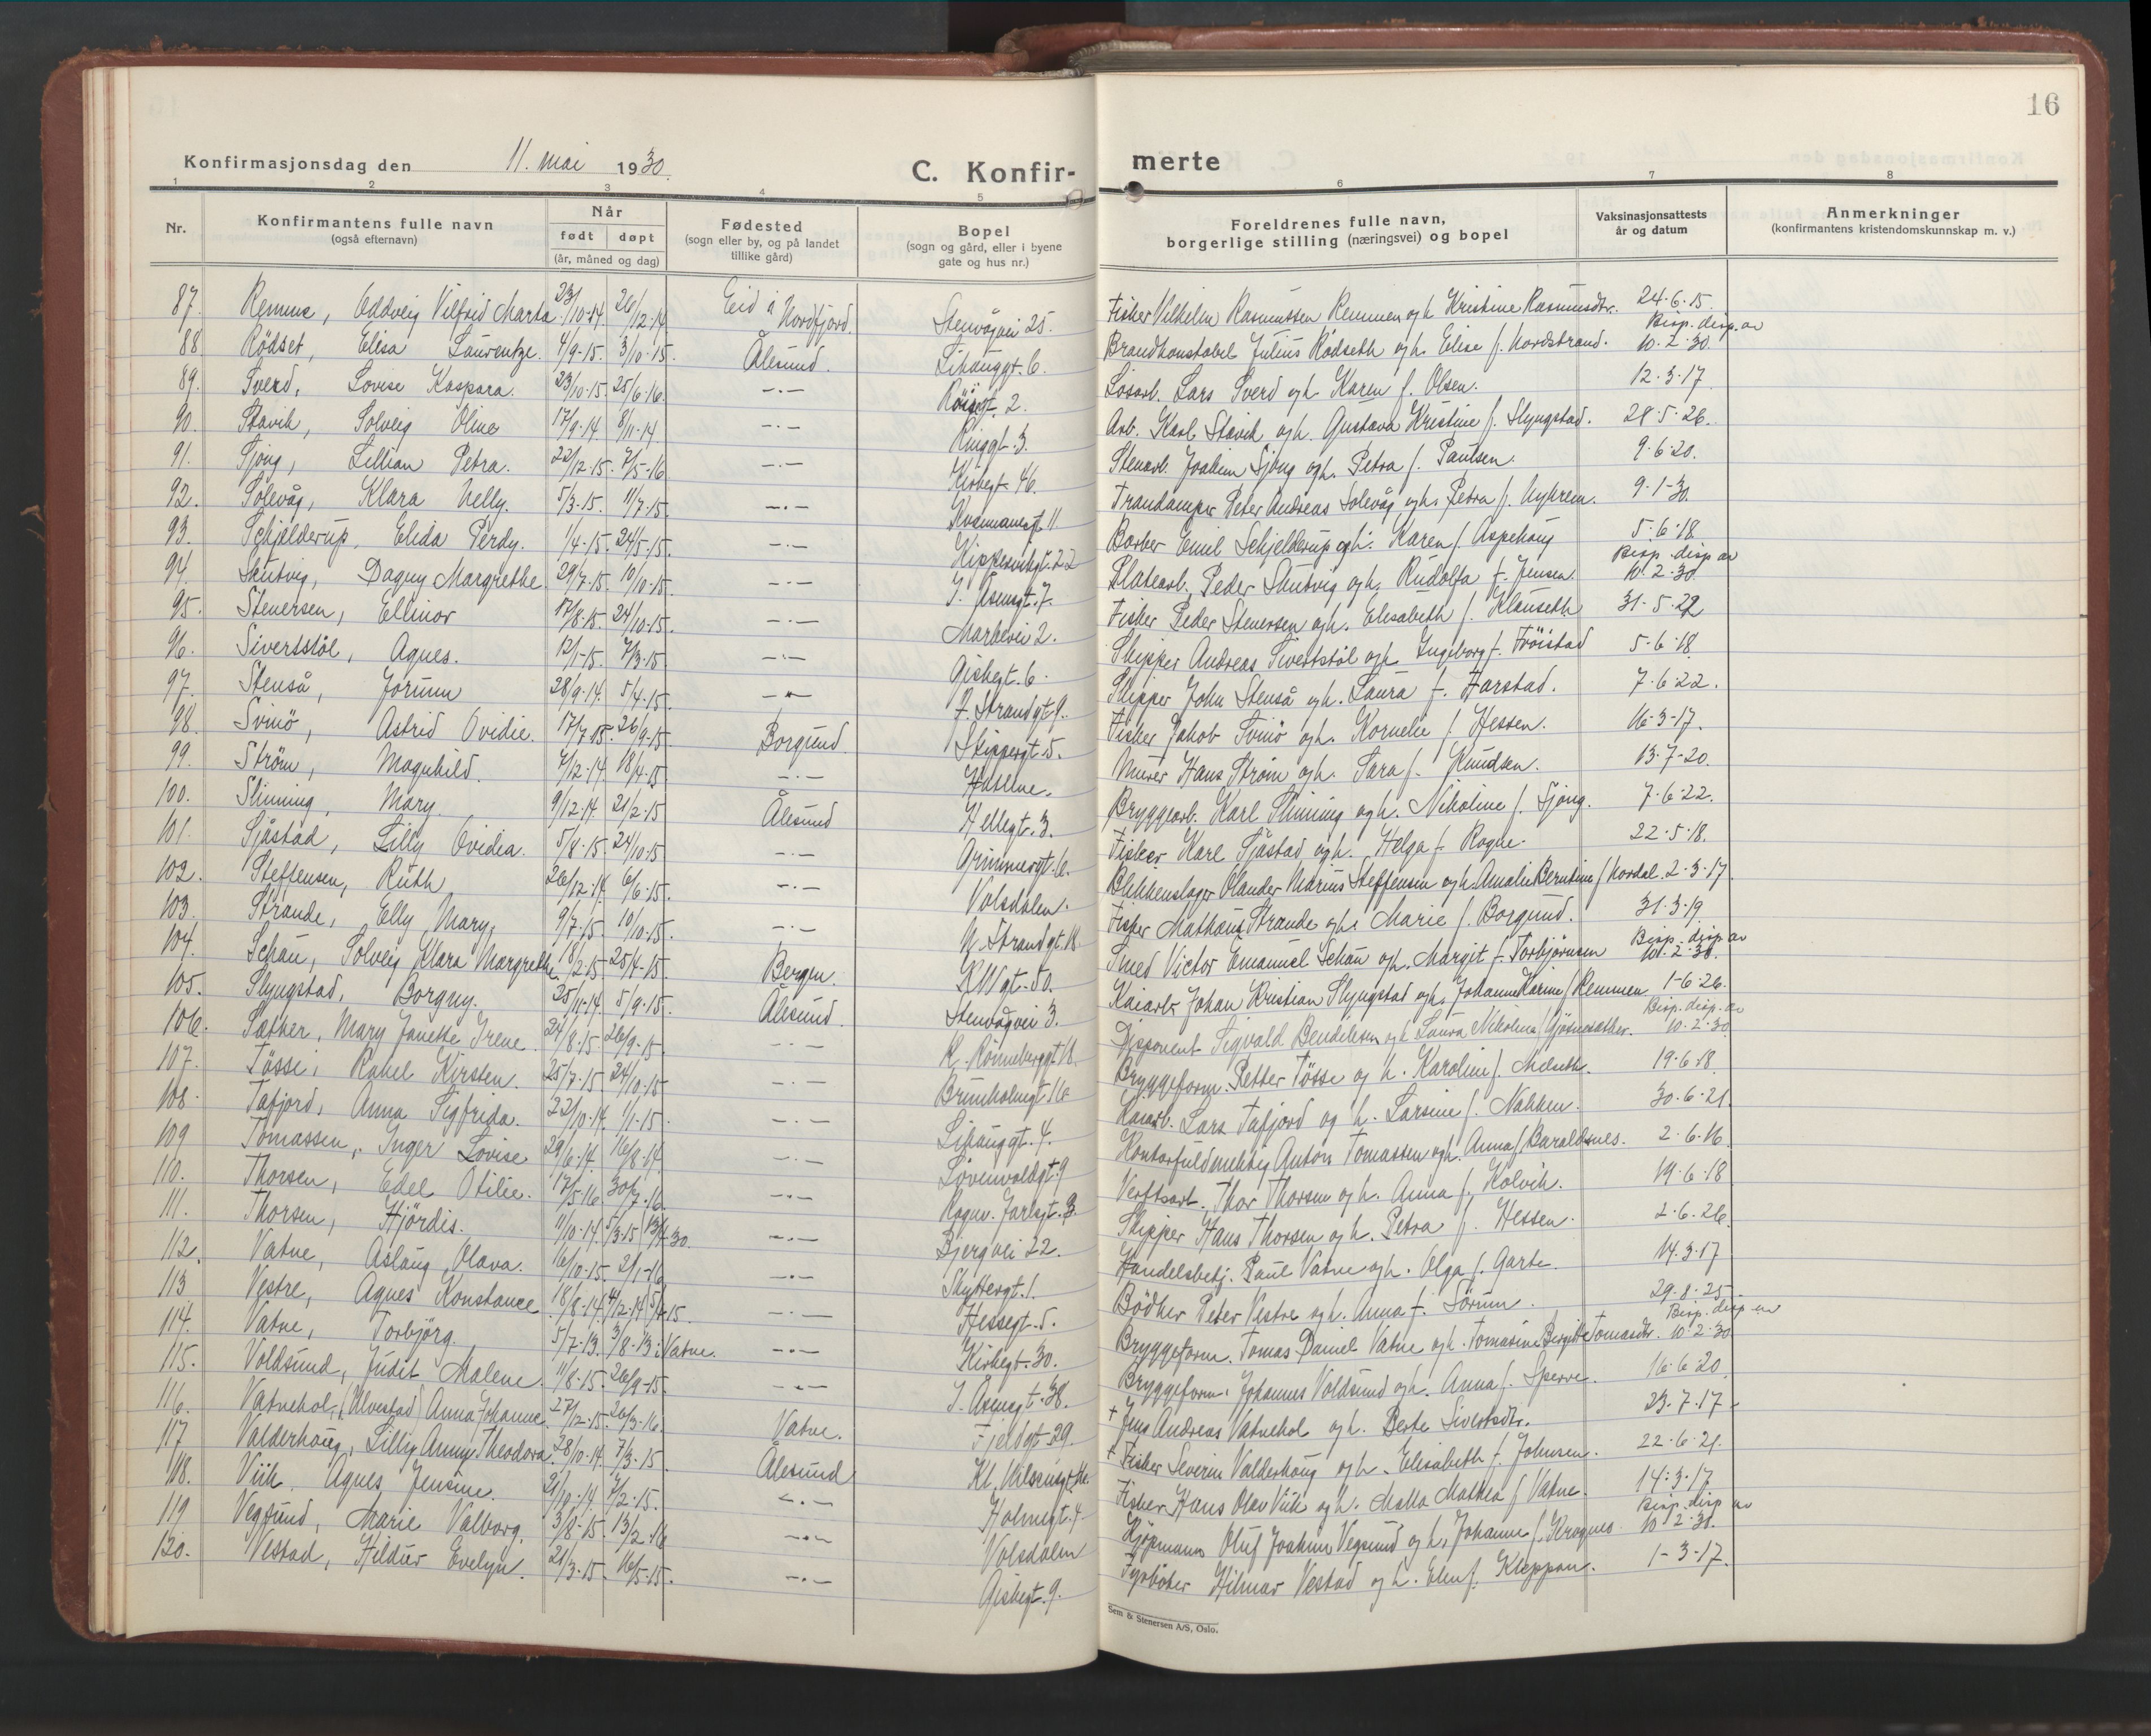 16
Konfirmasjonsdag den 11. mai 1930.
C. Konfir-
merte
1 2 3 4 5 6 7 8
Nr. Konfirmantens fulle navn (også efternavn) Når født døpt (år, måned og dag) Fødested (sogn eller by, og på landet tillike gård) Bopel (sogn og gård, eller i byene gate og hus nr.) Foreldrenes fulle navn, borgerlige stilling (næringsvei) og bopel Vaksinasjonsattests år og datum Anmerkninger (konfirmantens kristendomskunnskap m. v.)
87. Remme, Oddveig Vilfrid Marta 23/10-14. 26/12-14 Eid i Nordfjord. Stenvågvei 25. Fisker Vilhelm Rasmussen Remmen og h. Kristine Rasmusdtr. 24-6-15.
88 Rödset, Elisa Laurentze. 4/9-15. 3/10-15. Ålesund. Lihauggt. 6. Brandkonstabel Julius Rödseth og h. Elise f. Nordstrand. Bisp. disp. av 10-2-30.
89. Sverd, Lovise Kaspara. 23/10-15. 25/6-16. -.- 2. Lösarb. Lars Sverd og h. Karen f. Olsen. 12-3-17.
90. Stavik, Solveig Oline 17/9-14. 8/11-14 -.- Ringgt. 3. Arb. Karl Stavik og h. Gustava Kristine f. Slyngstad. 28-5-26.
91. Sjong, Lillian Petra. 22/12-15. 7/5-16 -.- Kirkegt. 46. Stenarb. Joakim Sjong og h. Petra f. Paulsen. 9-6-20.
92. Solevåg, Klara Nelly. 5/3-15. 11/7-15. -.- Kvennanesgt. 11 Trandamper Peter Andreas Solevåg og h. Petra f. Nyhrem. 9-1-30.
93. Schjelderup, Elida Perdy. 1/4-15. 24/5-15. -.- Kippervikgt. 22 Barber Emil Schjelderup og h. Karen f. Aspehaug 5-6-18.
94. Skutvig, Dagny Margrethe. 29/7-15. 10/10-15. -.- I. Åsensgt. 7. Platearb. Peder Skutvig og h. Rudolfa f. Jensen. Bisp. disp. av 10-2-30.
95. Stenersen, Ellinor 17/8-15. 24/10-15. -.- Markevei 2. Fisker Peder Stenersen og h. Elisabeth f. Klauseth 31-5-22
96. Sivertstöl, Agnes. 12/1-15. 7/3-15 -.- Giskegt. 6. Skipper Andreas Sivertstöl og h. Ingeborg f. Fröistad 5-6-18.
97. Stenså, Jorunn 28/9-14. 5/4-15. -.- P. Strandgt. 9. Skipper John Stenså og h. Laura f. Farstad. 7-6-22.
98. Svinö, Astrid Ovidie. 17/7-15. 26/9-15 Borgund. Skippergt. 5. Fisker Jakob Svinö og h. Kornelie f. Hessen. 16-3-17.
99. Ström, Magnhild. 7/12-14. 18/4-15 -.- Murer Hans Ström og h. Sara f. Knudsen. 13-7-20.
100. Slinning, Mary. 9/12-14. 21/2-15 Ålesund Hellegt. 3. Bryggearb. Karl Slinning og h. Nikoline f. Sjong. 7-6-22.
101. Sjåstad, Lilly Ovidia. 5/8-15. 24/10-15 -.- Grimmergt. 6. Fisker Karl Sjåstad og h. Helga f. Rogne. 22-5-18.
102. Steffensen, Ruth 26/12-14. 6/6-15. -.- Volsdalen. Blikkenslager Olander Marius Steffensen og h. Amalie Berntine f. Nordal. 2-3-17.
103. Strande, Elly Mary. 9/7-15 10/10-15. -.- N. Strandgt. 18. Fisker Mathæus Strande og h. Marie f. Borgund. 31-3-19.
104. Schau, Solveig Klara Margrethe 18/2-15 25/4-15. Bergen. 50. Smed Victor Emanuel Schau og h. Margit f. Torbjörnsen Bisp. disp. av 10-2-30.
105. Slyngstad, Borgny. 25/11-14. 5/9-15. Ålesund. Stenvågvei 3. Kaiarb. Johan Kristian Slyngstad og h. Johanne Karine f. Remmen 1-6-26.
106. Sæther, Mary Janette Irene 24/8-15. 26/9-15. -.- R. Rönneberggt. 18. Disponent Sigvald Bendiksen og h. Laura Nikolina f. Gjöstnesæther. Bisp. disp. av 10-2-30
107. Tösse, Rakel Kirsten. 25/7-15 24/10-15 -.- Brunholmgt. 16 Bryggeform. Petter Tösse og h. Karoline f. Melseth. 19-6-18.
108. Tafjord, Anna Sigfrida. 22/10-14. 1/1-15. -.- Lihauggt. 4. Kaiarb. Lars Tafjord og h. Larsine f. Nakken. 30-6-21.
109 Tomassen, Inger Lovise 29/6-14. 16/8-14. -.- Lövenvoldgt. 9 Kontorfuldmektig Anton Tomassen og h. Anna f. Haraldsnes. 2-6-16.
110. Thorsen, Edel Otilie. 17/5-16 30/7-16. -.- Ragnv. Jarlsgt. 3. Verftsarb. Thor Thorsen og h. Anna f. Kolvik. 19-6-18
111. Thorsen, Hjördis. 11/10-14. 5/3-15 13/4-30. -.- Bjergvei 22. Skipper Hans Thorsen og h. Petra f. Hessen. 2-6-26.
112. Vatne, Aslaug Olava. 16/10-15. 2/1-16 -.- Skyttergt. 1. Handelsbetj. Paul Vatne og h. Olga f. Garte. 14-3-17
113 Vestre, Agnes Konstance 18/8-14. 4/12-14 5/4-15 -.- Hessegt. 5. Bödker Peter Vestre og h. Anna f. Sörum. 29-8-25.
114. Vatne, Torbjörg. 5/7-13. 3/8-13 i Vatne. -.- Kirkegt. 30. Bryggeform. Tomas Daniel Vatne og h. Tomasine Bergitte Tomasdtr. Bisp. disp. av 10-2-30
115. Voldsund, Judit Malene. 11/8-15. 26/9-15. -.- I. Åsensgt. 38. Bryggeform. Johannes Voldsund og h. Anna f. Sperre. 16-6-20.
116. Vatnehol, (Ulvestad) Anna Johanne. 27/12-15. 26/3-16. Vatne. Fjeldgt. 29. † Jens Andreas Vatnehol og h. Berte Sivertsdtr. 23-7-17
117 Valderhaug, Lilly Anny Theodora. 28/10-14. 7/3-15. Ålesund Kt. Nilsensgt. † Fisker Severin Valderhaug og h. Elisabeth f. Johnsen. 22-6-21.
118. Viik, Agnes Jensine. 21/10-14. 7/2-15. -.- Holmegt. 4. Fisker Hans Olav Viik og h. Malla Mathea f. Vatne. 14-3-17.
119 Vegsund, Marie Valborg. 3/8-15. 13/2-16 -.- Volsdalen Kjöpmann Oluf Joakim Vegsund og h. Johanne f. Kragnes. Bisp. disp. av 10-2-30.
120. Vestad, Hildur Evelyn. 21/3-15. 16/5-15. -.- Giskegt. 9. Fyrböter Hilmar Vestad og h. Elen f. Kleppan. 1-3-17.
Sem & Stenersen A/S, Oslo.